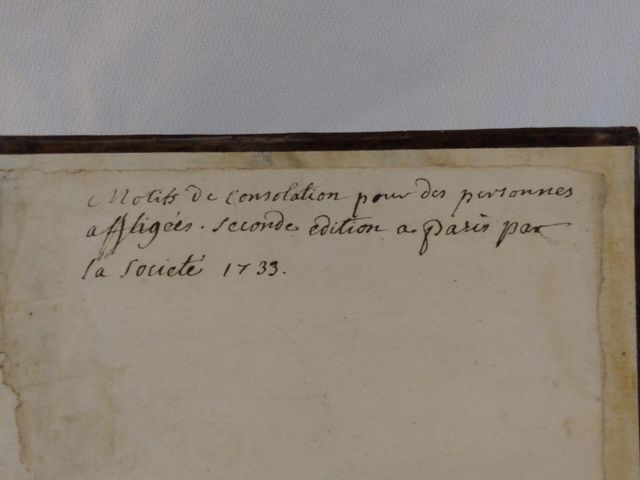 Motifs de Consolation pour des personnes
affligées. seconde edition a paris par
la societé 1733.